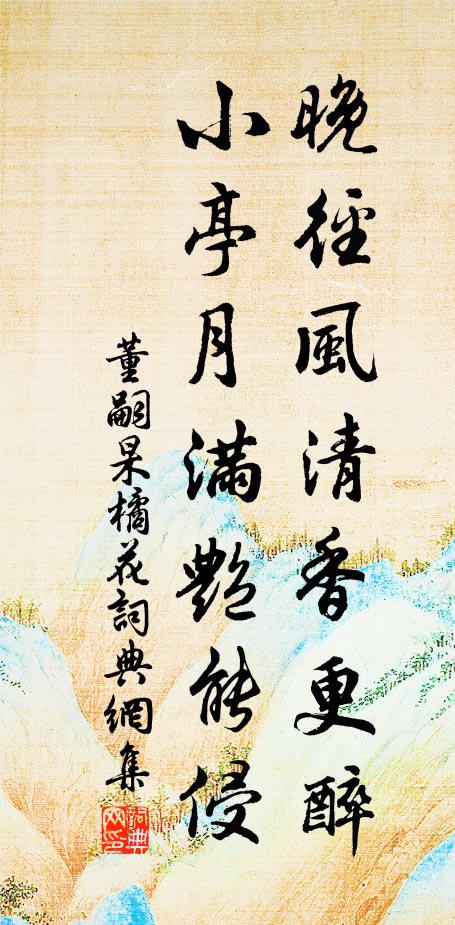 晚徑風清香更醉
小亭月滿艷能侵
董嗣杲橘花詞典網集
詞典
网印